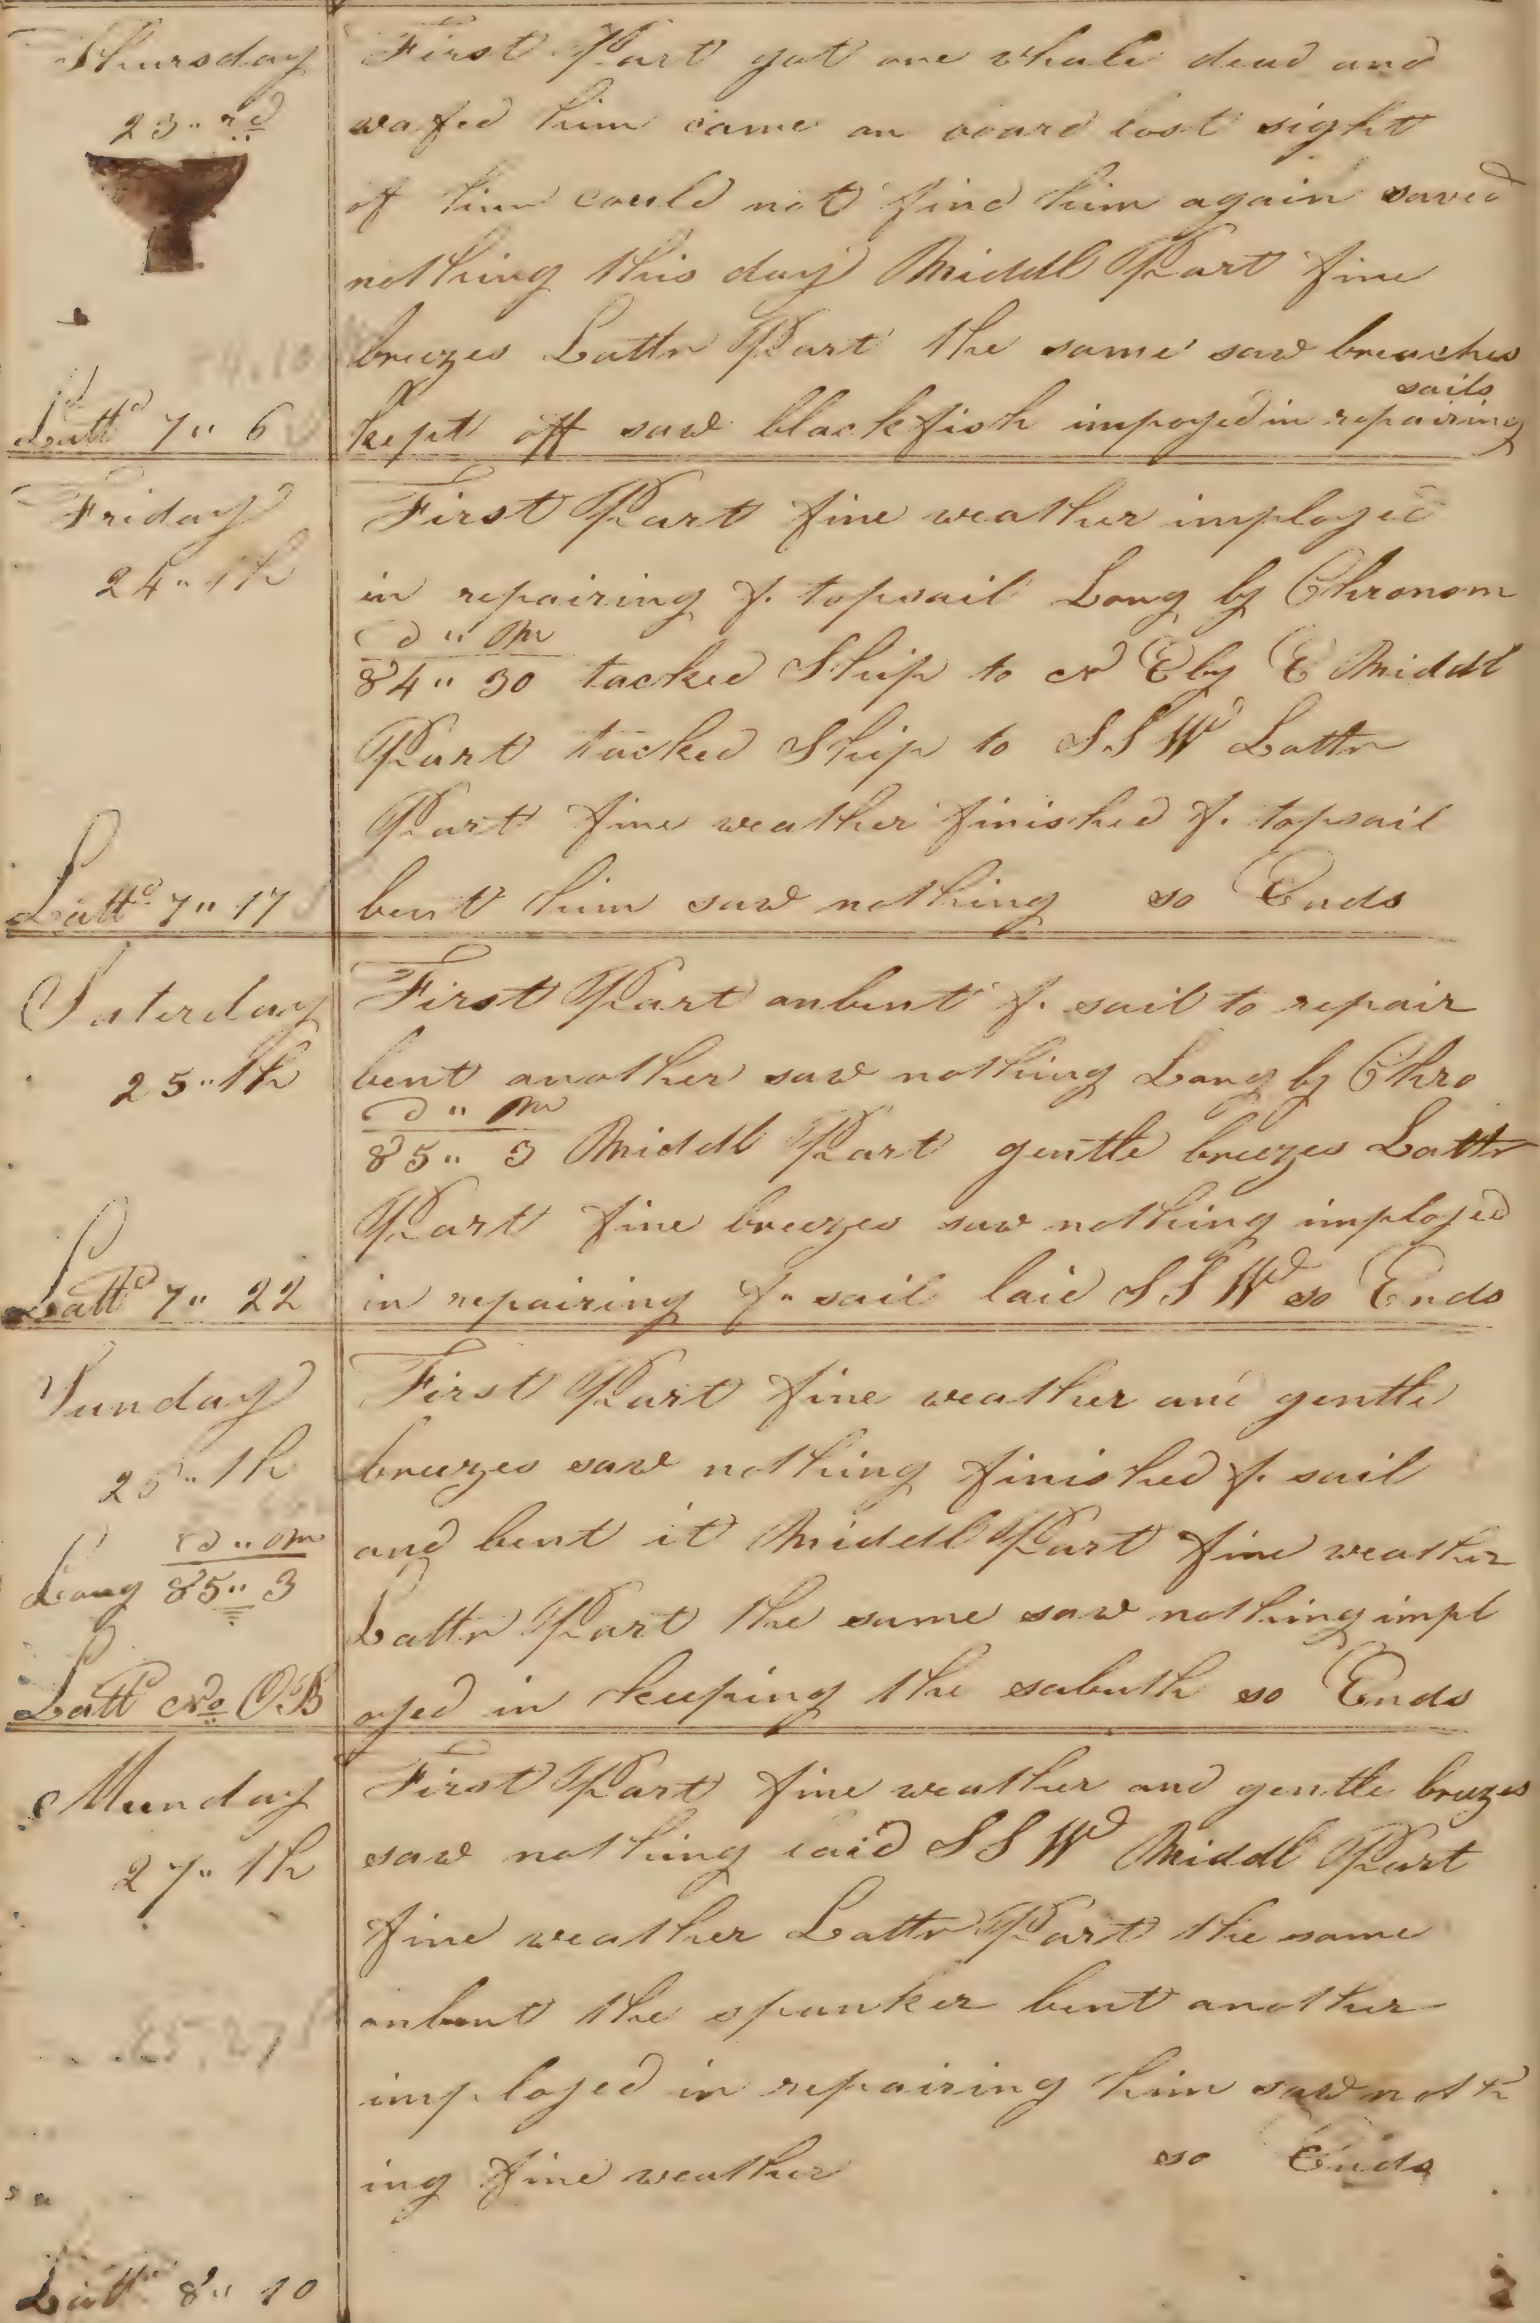 Thursday
23" rd
Lattd 7" 6
First Part got one whale dead and
wafed him came on board lost sight
of him could not find him again saved
nothing this day Middl Part fine
breezes Lattr Part the same saw breaches
sails
kept off saw blackfish impoyed in repairing
Friday
24" th
Lattd 7" 17
First Part fine weather imployed
in repairing f. topsail Long by Chronom
d " m
84" 30 tacked Ship to N E by E Middl
Part tacked Ship to S S W Lattr
Part fine weather finished f. topsail
bent him saw nothing so Ends
Saterday
25" th
Lattd 7" 22
First Part onbent f. sail to repair
bent another saw nothing Long by Chro
d " m
85" 3 Middl Part gentle breezes Lattr
Part fine breezes saw nothing imployed
in repairing f" sail laid S S Wd so Ends
Sunday
26" th
d " m
Long 85" 3
Lattd No OB
First Part fine weather and gentle
breezes saw nothing finished f. sail
and bent it Middl Part fine weather
Lattr Part the same saw nothing impl
oyed in keeping the sabuth so Ends
Munday
27" th
85,27
Lattd 8" 10
First Part fine weather and gentle brezes
saw nothing laid S S Wd Middl Part
fine weather Lattr Part the same
onbent the spunker bent another
imployed in repairing him saw noth
ing fine weather so Ends